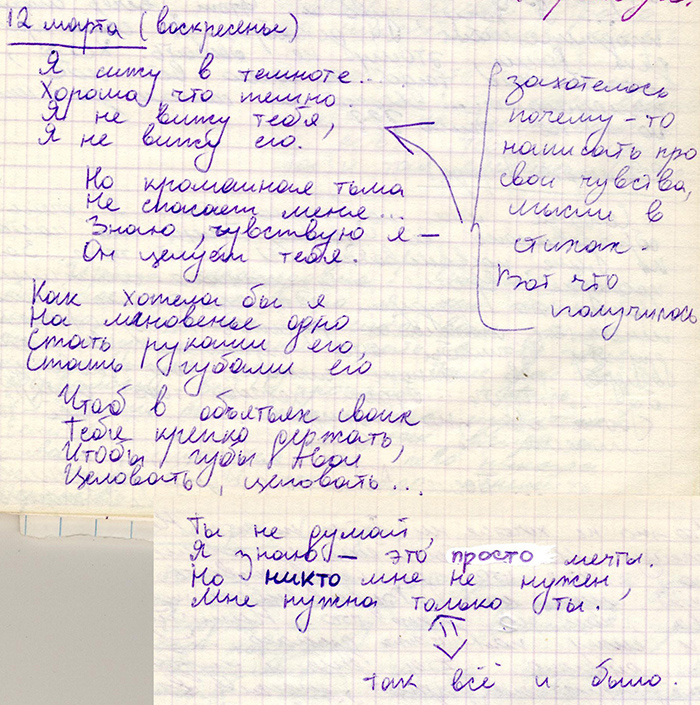 12 марта (воскресенье)
Я сижу в темноте...
Хорошо что темно.
Я не вижу тебя,
Я не вижу его.
Но кромешная тьма
Не спасает меня...
Знаю, чувствую я —
Он целует тебя.
Как хотела бы я
На мгновенье одно
Стать руками его,
Стать губами его
Чтоб в объятьях своих
Тебя крепко держать,
Чтобы губы твои
Целовать, целовать...
Ты не думай,
Я знаю — это просто мечты.
Но никто мне не нужен,
Мне нужна только ты.
так всё и было.
захотелось
почему-то
написать про
свои чувства,
мысли в
стихах.
Вот что
получилось